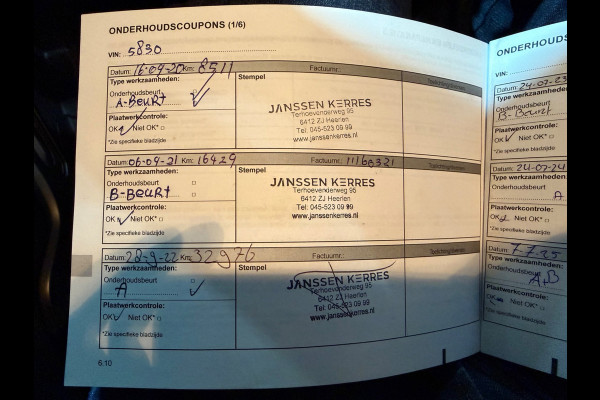 ONDERHOUDSCOUPONS (1/6)
VIN: 5830
Datum: 16-09-20 Km: 8511
Factuurnr.:
Type werkzaamheden:
Stempel
Onderhoudsbeurt
A-BEURT
Plaatwerkcontrole:
OK Niet OK*
*Zie specifieke bladzijde
JANSSEN KERRES
Terhoevenderweg 95
6412 ZJ Heerlen
Tel: 045-523 09 99
www.janssenkerres.nl
Datum: 06-09-21 Km: 16429
Factuurnr.: 11160321
Type werkzaamheden:
Stempel
Onderhoudsbeurt
B-BEURT
Plaatwerkcontrole:
OK Niet OK*
*Zie specifieke bladzijde
JANSSEN KERRES
Terhoevenderweg 95
6412 ZJ Heerlen
Tel: 045-523 09 99
www.janssenkerres.nl
Datum: 28-9-22 Km: 32976
Type werkzaamheden:
Stempel
Onderhoudsbeurt
A
Plaatwerkcontrole:
OK Niet OK*
*Zie specifieke bladzijde
JANSSEN KERRES
Terhoevenderweg 95
6412 ZJ Heerlen
Tel: 045-523 09 99
www.janssenkerres.nl
6.10
ONDERHOUDS
VIN:
Datum: 24-07-23
Type werkzaamheden:
Onderhoudsbeurt
B-Beurt
Plaatwerkcontrole:
OK Niet OK*
*Zie specifieke bladzijde
Datum: 24-07-24
Type werkzaamheden:
Onderhoudsbeurt
A
Plaatwerkcontrole:
OK Niet OK*
*Zie specifieke bladzijde
Datum: 7.7.25
Type werkzaamheden:
Onderhoudsbeurt
A,B
Plaatwerkcontrole:
OK Niet OK*
*Zie specifieke bladzijde